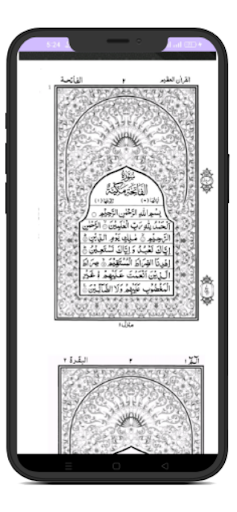 6:24
الفاتحة
٢
القرآن العظيم
سورة
الفاتحة مكية
بِسْمِ اللهِ الرَّحْمٰنِ الرَّحِيْمِ
اَلْحَمْدُ لِلّٰهِ رَبِّ الْعٰلَمِيْنَ الرَّحْمٰنِ
الرَّحِيْمِ مٰلِكِ يَوْمِ الدِّيْنِ
اِيَّاكَ نَعْبُدُ وَ اِيَّاكَ نَسْتَعِيْنُ
اِهْدِنَا الصِّرَاطَ الْمُسْتَقِيْمَ صِرَاطَ
الَّذِيْنَ اَنْعَمْتَ عَلَيْهِمْ غَيْرِ
الْمَغْضُوْبِ عَلَيْهِمْ وَلَا الضَّآلِّيْنَ
منزل ١
البقرة ٢
الٓمّٓ ١